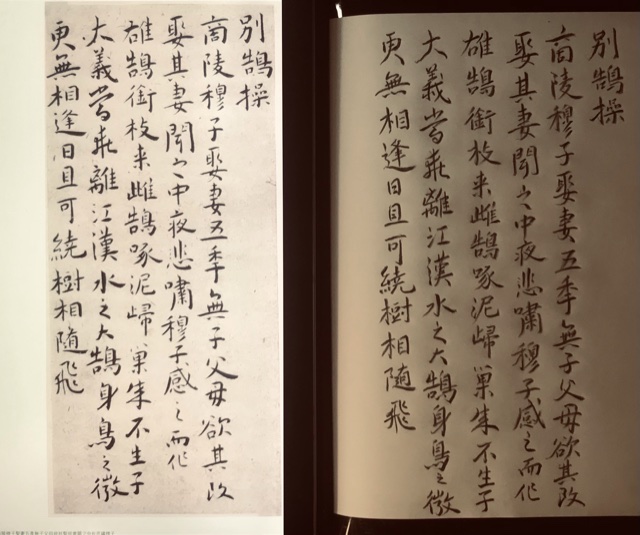 別鵠操
商陵穆子娶妻五年無子父母欲其改
娶其妻聞之中夜悲嘯穆子感之而作
雄鵠銜枝来雌鵠啄泥歸巢成不生子
大義當乖離江漢水之大鵠身鳥之微
更無相逢日且可繞樹相随飛
別鵠操
商陵穆子娶妻五年無子父母欲其改
娶其妻聞之中夜悲嘯穆子感之而作
雄鵠銜枝来雌鵠啄泥歸巢成不生子
大義當乖離江漢水之大鵠身鳥之微
更無相逢日且可繞樹相随飛